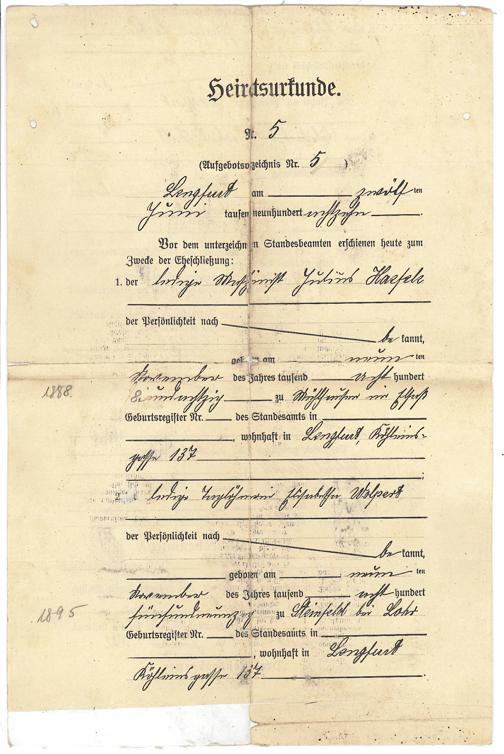 Heiratsurkunde.
Nr. 5
(Aufgebotsverzeichnis Nr. 5 )
Lengfurt am zwölf ten
Juni tausend neunhundert achtzehn .
Vor dem unterzeichneten Standesbeamten erschienen heute zum
Zwecke der Eheschließung:
1. der ledige Maschinist Julius Haefele
der Persönlichkeit nach
be kannt,
geboren am neun ten
November des Jahres tausend acht hundert
1888. achtundachtzig zu Mühlhausen im Elsaß
Geburtsregister Nr. des Standesamts in
, wohnhaft in Lengfurt,
gasse 137
;
2. ledige Taglöhnerin Elisabetha Wolpert
der Persönlichkeit nach
be kannt,
geboren am neun ten
November des Jahres tausend acht hundert
1895 fünfundneunzig zu Steinfeld bei Lohr
Geburtsregister Nr. des Standesamts in
, wohnhaft in Lengfurt
gasse 137 .